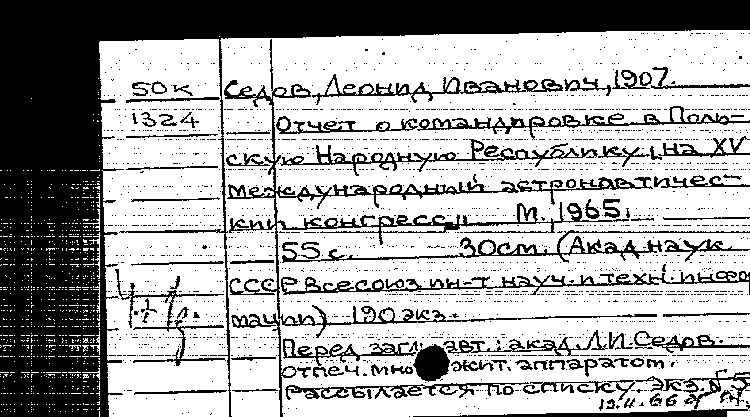 50к Седов, Леонид Иванович, 1907.
1324 Отчет о командировке в Поль-
скую Народную Республику, на XV
международный астронавтичес-
кий конгресс,, М., 1965.
55 с. 30см. (Акад. наук
СССР Всесоюз ин-т науч. и техн. инфор
мации) 190 экз.
Перед загл. авт.: акад. Л.И. Седов.
отпеч. аппаратом.
Рассылается по списку. экз. №